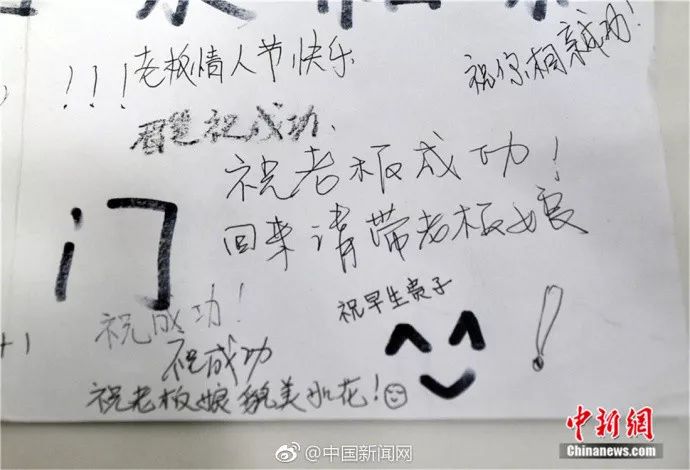 !!! 老板情人节快乐
祝你相亲成功!
祝成功
祝老板成功!
回来请带老板娘
门
祝早生贵子
祝成功!
祝成功
+1
祝老板娘貌美如花!
!
@中国新闻网
中新網
Chinanews.com